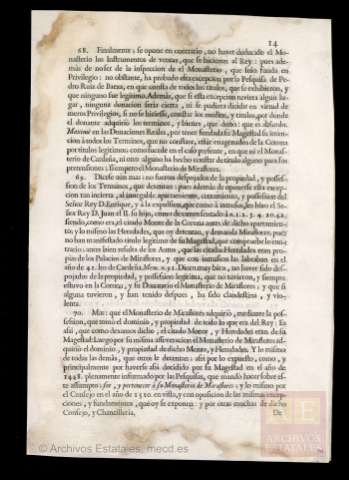 14
68. Finalmente; se opone en contrario, no haver deducido el Mo-
nasterio los Instrumentos de ventas, que se hicieron al Rey: pues ade-
más de no ser de la inspeccion de el Monasterio, que solo funda en
Privilegio: no obstante, ha probado esta excepcion por la Pesquisa de Pe-
dro Ruiz de en que consta de todos los titulos, que se exhibieron, y
que ninguno fue legitimo. Además, que si esta excepcion tuviera algun lu-
gar, ninguna donacion sería cierta, ni se pudiera decidir en virtud de
meros Privilegios, si no se hiciesse, constar los medios, y titulos, por donde
el donante adquirió los terminos, y bienes, que donó: que es absurdo.
Maxime en las Donaciones Reales, por tener fundada su Magestad su inten-
cion à todos los Terminos, que no constare, estàr enagenados de la Corona
por titulos legitimos; como sucede en el caso presente, en que ni el Monaste-
rio de Cardeña, ni otro alguno ha hecho constar de titulo alguno para sus
pretensiones: si empero el Monasterio de Miraflores.
69. Dicese aun mas: no fueron despojados de la propiedad, y posses-
sion de los Terminos, que detentan: pues además de oponerse esta excep-
cion tan incierta, al innegable apeamiento, cerramiento, y possession de el
Señor Rey D. Enrique, y à la expulsion, que como à intrusos, les hizo el Se-
ñor Rey D. Juan el II. su hijo, como de
siendo, como era, el citado Monte de la Corona antes de dicho apartamien-
to; y lo mismo las Heredades, que oy detenta, y demanda Miraflores, pues
no han manifestado titulo legitimo de su Magestad, que compruebe lo con-
trario: antes bien resulta de los Autos, que las citadas Heredades eran pro-
pias de los Palacios de Miraflores, y que con intrusos las labraban en el
año de 42. los de Cardeña. Dicen muy bien, no haver sido des-
pojados de la propiedad, y possession legitima, que no tuvieron, y siempre
estuvo en la Corona, y su Donatario el Monasterio de Miraflores: y que si
alguna tuvieron, y han tenido despues, ha sido clandestina, y vio-
lenta.
70. Mas: que el Monasterio de Miraflores adquirió, mediante la pos-
session, que tomó el dominio, y propiedad de todo lo que era del Rey: Es
assi, que como dexamos dicho, el citado Monte, y Heredades eran de su
Magestad: Luego por su misma asseveracion el Monasterio de Miraflores ad-
quirió el dominio, y propiedad de dicho Monte, y Heredades. Y lo mismo
de todas las demás, que otros le detentan: assi por lo expuesto, como, y
principalmente por haverse assi decidido por su Magestad en el año de
1448. plenamente informado por las Pesquisas, que mandó hacer sobre es-
te assumpto: ser, y pertenecer à su Monasterio de Miraflores: y lo mismo por
el Consejo en el año de 1520. en vista, y con oposicion de las mismas excep-
ciones, y fundamentos, que oy se exponen: y por otras muchas de dicho
Consejo, y Chancilleria,
De
AE
ARCHIVOS
ESTATALES
© Archivos Estatales, mecd.es